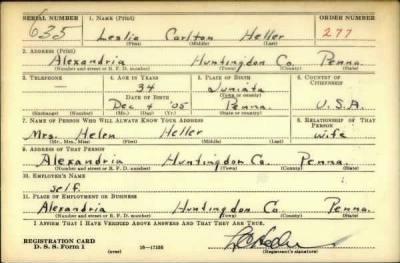 SERIAL NUMBER 1. NAME (Print) ORDER NUMBER
635 Leslie Carlton Heller 277
(First) (Middle) (Last)
2. ADDRESS (Print)
Alexandria Huntingdon Co. Penna.
(Number and street or R. F. D. number) (Town) (County) (State)
3. TELEPHONE 4. AGE IN YEARS 5. PLACE OF BIRTH 6. COUNTRY OF CITIZENSHIP
— 34 Juniata
DATE OF BIRTH (Town or county)
Dec 4 '05 Penna. U.S.A.
(Exchange) (Number) (Mo.) (Day) (Yr.) (State or country)
7. NAME OF PERSON WHO WILL ALWAYS KNOW YOUR ADDRESS 8. RELATIONSHIP OF THAT PERSON
Mrs. Helen Heller wife
(Mr., Mrs., Miss) (First) (Middle) (Last)
9. ADDRESS OF THAT PERSON
Alexandria Huntingdon Co. Penna.
(Number and street or R. F. D. number) (Town) (County) (State)
10. EMPLOYER'S NAME
self.
11. PLACE OF EMPLOYMENT OR BUSINESS
Alexandria Huntingdon Co. Penna.
(Number and street or R. F. D. number) (Town) (County) (State)
I AFFIRM THAT I HAVE VERIFIED ABOVE ANSWERS AND THAT THEY ARE TRUE.
REGISTRATION CARD
D. S. S. Form 1 (over) 16—17105 (Registrant's signature)